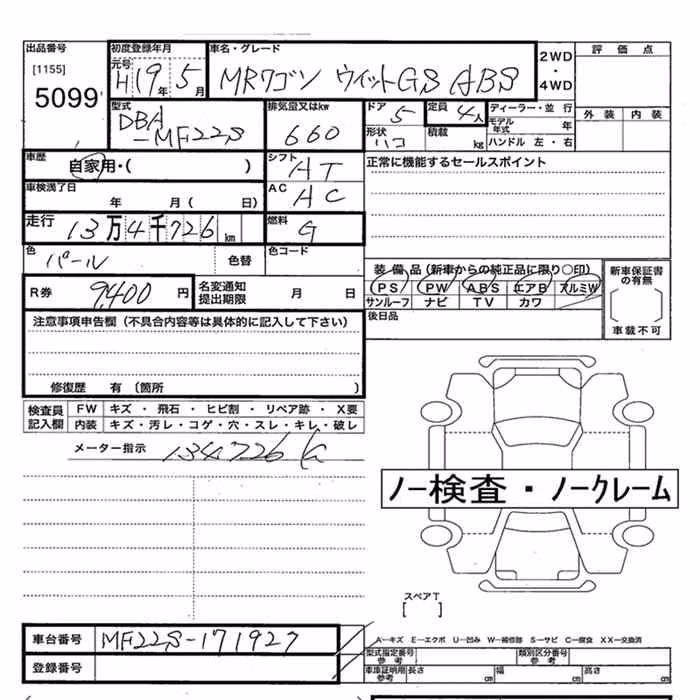 出品番号 初度登録年月 車名・グレード 2WD・4WD 評価点
[1155] 元号 H19年5月 MRワゴン ウィットGS ABS
5099
型式 排気量又はkw ドア 5 定員 4人 ディーラー・並行 外装 内装
DBA-MF22S 660 形状 ハコ 積載 kg モデル年式 年
ハンドル 左・右
車歴 自家用・( ) シフト AT 正常に機能するセールスポイント
車検満了日 年 月( 日) AC AC
走行 13万4千726km 燃料 G
色 パール 色替 色コード
装備品(新車からの純正品に限り○印) 新車保証書の有無
R券 9,400円 名変通知提出期限 月 日 PS PW ABS エアB アルミW
サンルーフ ナビ TV カワ
注意事項申告欄(不具合内容等は具体的に記入して下さい) 後日品 車載不可
修復歴 有〔箇所 〕
検査員記入欄 FW キズ・飛石・ヒビ割・リペア跡・X要
内装 キズ・汚レ・コゲ・穴・スレ・キレ・破レ
メーター指示 134726K
ノー検査・ノークレーム
スペアT
[ ]
車台番号 MF22S-171927 A―キズ E―エクボ U―凹み W―補修跡 S―サビ C―腐食 XX―交換済
登録番号 型式指定番号 参考 類別区分番号 参考
車庫証明用 参考 長さ cm 幅 cm 高さ cm